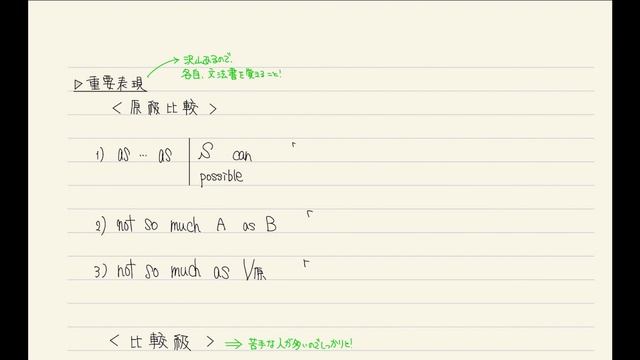 沢山あるので、
各自、文法書を覚えること!
▷重要表現
<原級比較>
1) as … as | S can 「
possible
2) not so much A as B 「
3) not so much as V原 「
<比較級> ⇒ 苦手な人が多いのでしっかりと!